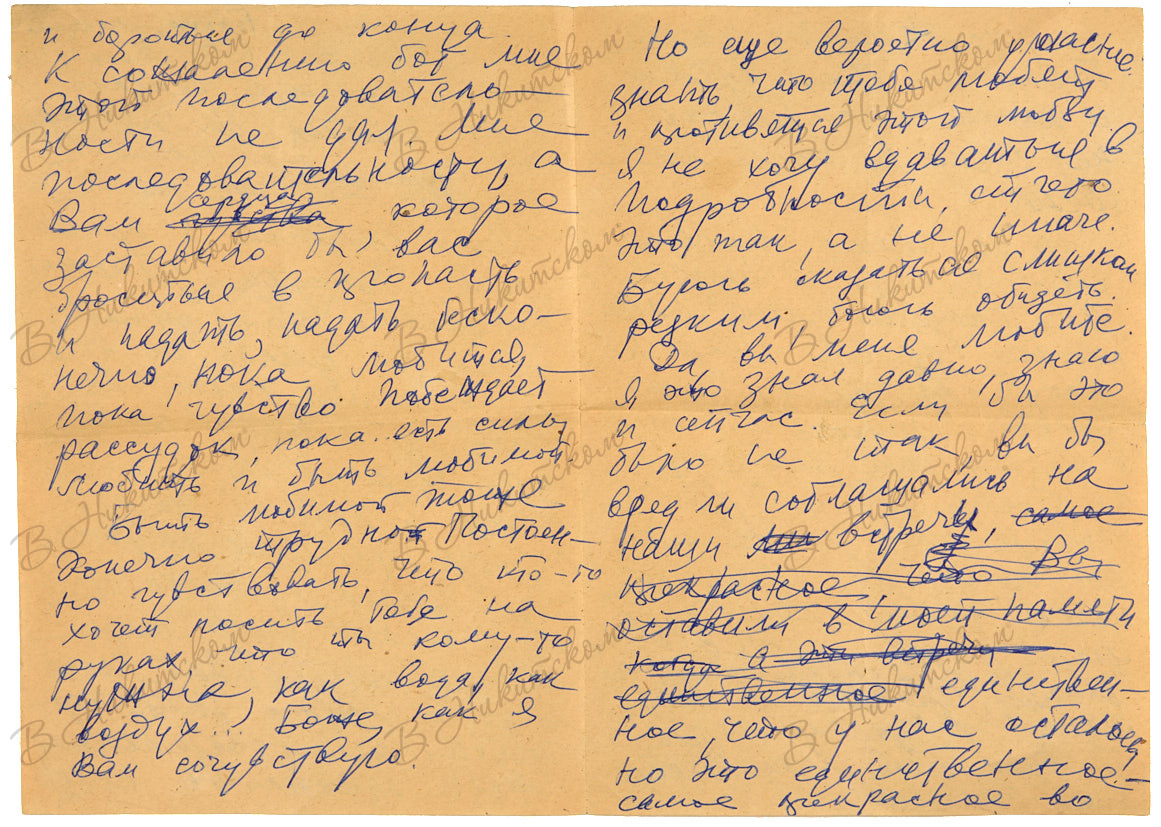 и бороться до конца.
К сожалению бог мне
этой последователь-
ности не дал. Мне
последовательности, а
Вам сердца которое
заставило бы вас
броситься в пропасть
и падать, падать беско-
нечно, пока любится,
пока чувство побеждает
рассудок, пока есть силы
любить и быть любимой
Быть любимой тоже
конечно трудно. Постоян-
но чувствовать, что кто-то
хочет носить тебя на
руках что ты кому-то
нужна как вода, как
воздух... Боже, как я
Вам сочувствую.
Но еще вероятно ужасние
знать, что тебя любят
и противяться этой любви
Я не хочу вдаваться в
подробности, отчего
это так, а не иначе.
Боюсь показаться слишком
резким, боюсь обидеть.
Да, вы меня любите.
Я это знал давно, знаю
и сейчас. Если бы это
было не так, вы бы
вряд ли соглашались на
наши встречи, самое
прекрасное, что Вы
оставили в моей памяти
когда а эти встречи
единственное единствен-
ное, что у нас осталось
но это единственное-
самое прекрасное во
В Никитском